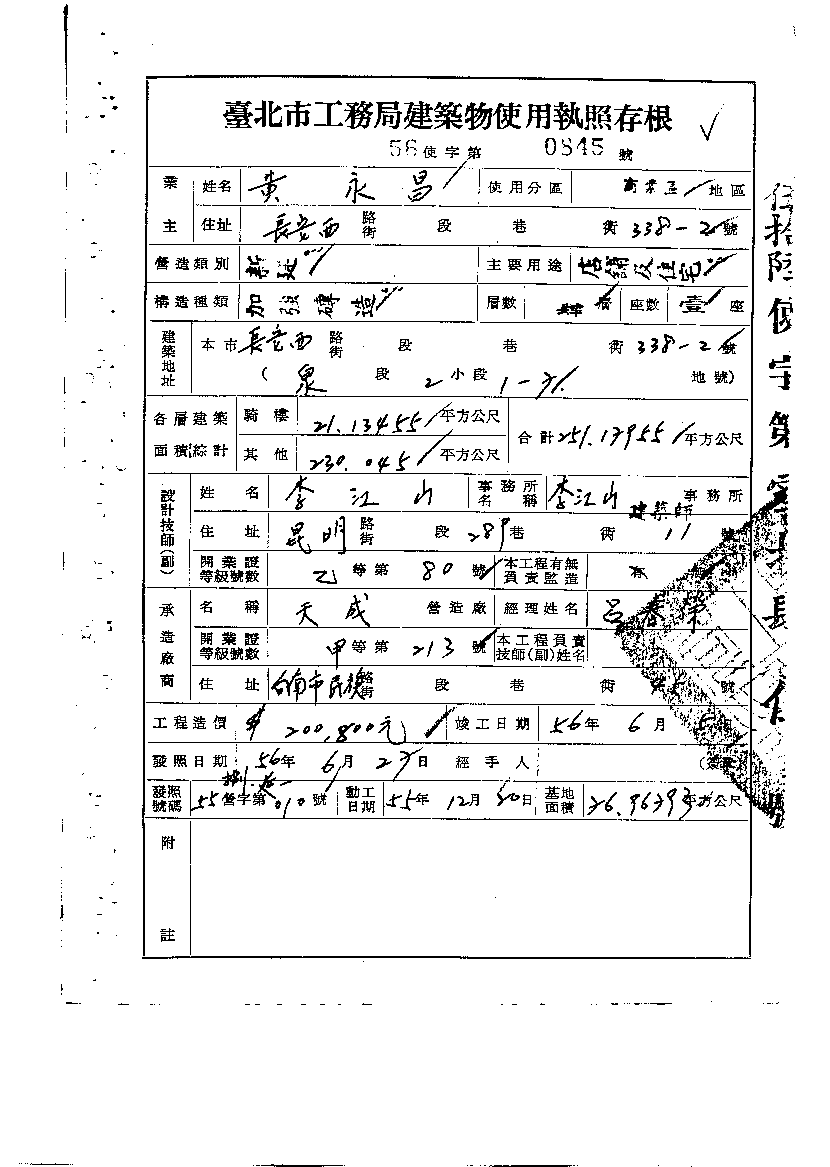 臺北市工務局建築物使用執照存根
56使字第 0845 號
業主 姓名 黃永昌 使用分區 商業區 地區
住址 長安西 路街 段 巷 街 338-2 號
營造類別 新建 主要用途 店舖及住宅
構造種類 加強磚造 層數 座數 壹 座
建築地址 本市 長安西 路街 段 巷 街 338-2 號
( 泉 段 2 小段 1-31 地號)
各層建築面積綜計 騎樓 21.13455 平方公尺 合計 251.17955 平方公尺
其他 230.045 平方公尺
設計技師(副) 姓名 李江山 事務所名稱 李江山建築師 事務所
住址 昆明 路街 段 289 巷 街 11 號
開業證等級號數 乙 等第 80 號 本工程有無負責監造
承造廠商 名稱 天成 營造廠 經理姓名 呂春榮
開業證等級號數 甲 等第 213 號 本工程負責技師(副)姓名
住址 台南市民權 路街 段 巷 街 號
工程造價 $200,800元 竣工日期 56年 6月 5日
發照日期 56年 6月 23日 經手人
發照號碼 55 營字第 010 號 動工日期 55年 12月 20日 基地面積 76.96393 平方公尺
附註
伍拾陸使字第